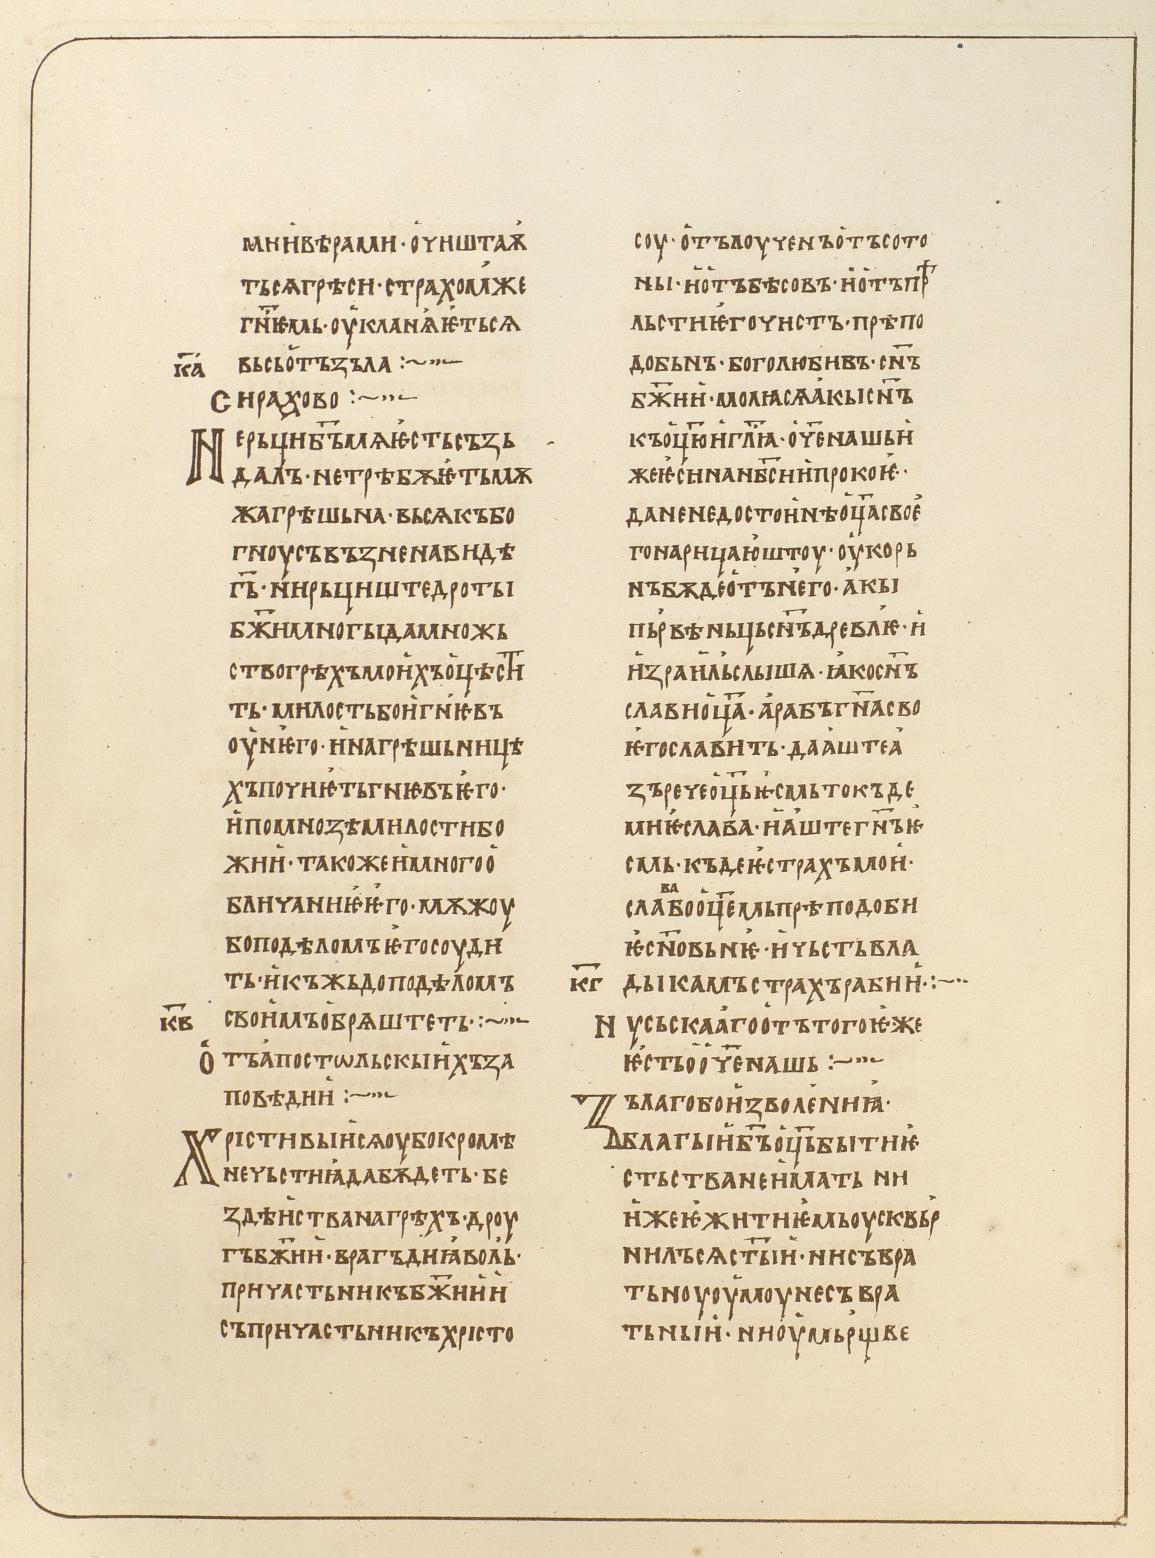 мнивѣрами·очиштаѫ
тьсѧгрѣси·страхомьже
гн҃ѥмь·оукланꙗ̂ѥтьсѧ
вьсьо̂тъзъла :~
к҃а
Сирахово :~
Нерьцибъ҃мѧѥстьсъзь
далъ·нетрѣбѫѥтьмѫ
жагрѣшьна·вьсѧкъбо
гноусъвъзненавидѣ
г҃ь·нирьциштедроты
бж҃имногыдамножь
ствогрѣхъмоихъоцѣсти
ть·милостьбоигнѣвъ
оунѥго·инагрѣшьницѣ
хъпочиѥтьгнѣвъѥго·
ипомнозѣмилостибо
жии·такожеимногоо
бличаниѥѥго·мѫжоу
боподѣломъѥгосоуди
ть·икъжьдоподѣломъ
своимъобрѧштеть·:~
к҃в
Отъапостѡльскыихъза
повѣдии :~
Хрістивыисѧоубокромѣ
нечьстиꙗдабѫдеть·бе
здѣистванагрѣхъ·дроу
гъбж҃ии·врагъдиꙗволь·
причастьникъбж҃иии
съпричастьникъхрісто
соу·отълоученъотъсото
ны·иотъбѣсовъ·иотъпр
льстиѥгочистъ·прѣпо
добьнъ·боголюбивъ·сн҃ъ
бж҃ии·молюсѧакысн҃ъ
къоц҃юигл҃ꙗ·оч҃енашьи
жеѥсинанб҃сиипрокоѥ·
даненедостоинѣоц҃асвоѥ
гонарицаюштоу·оукорь
нъбѫдеотънего·акы
пьрвѣньцьсн҃ъдревлѥ·и
израильслышѧ·ꙗкосн҃ъ
славиоц҃а·арабъгн҃асво
ѥгославить·дааштеа
зъречеоц҃ьѥсмьтокъде
миѥслава·иаштегн҃ъѥ
смь·къдеѥстрахъмои·
славооц҃емьпрѣподоби
ва
ѥсн҃овьнѥ·ичьстьвла
дыкамъстрахърабии·:~
к҃г
Ичьскаагоотътогоѥже
ѥстьооч҃енашь :~
Зълагобоизволениꙗ·
благыибъ҃оц҃ьбытиѥ
стьстванеимать ни
ижеѥжитиѥмьоусквьр
нилъсѧст҃ыи·нисъвра
тьноуоумоунесъвра
тьныи·ниоумьрщве